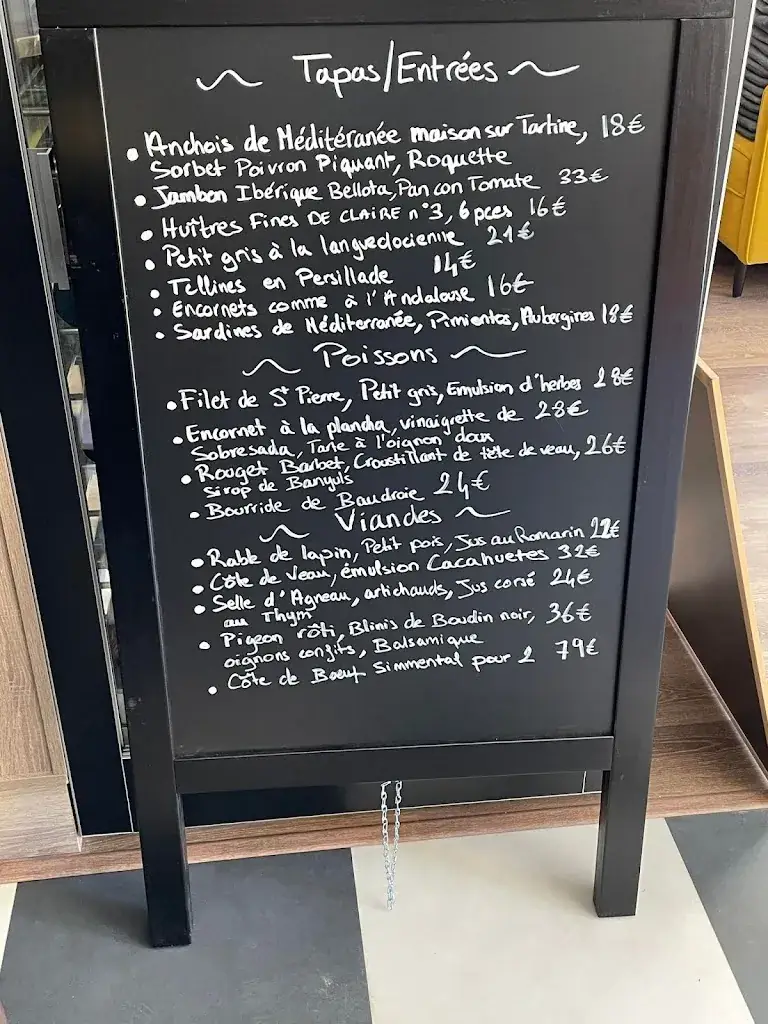 Tapas/Entrées
• Anchois de Méditéranée maison sur Tartine, 18€
Sorbet Poivron Piquant, Roquette
• Jambon Ibérique Bellota, Pan con Tomate 33€
• Huîtres Fines DE CLAIRE n°3, 6 pces 16€
• Petit gris à la languedocienne 21€
• Tellines en Persillade 14€
• Encornets comme à l'Andalouse 16€
• Sardines de Méditerranée, Pimientos, Aubergines 18€
Poissons
• Filet de St Pierre, Petit gris, Emulsion d'herbes 28€
• Encornet à la plancha, vinaigrette de 28€
Sobresada, Tarte à l'oignon doux
• Rouget Barbet, Croustillant de tête de veau, 26€
Sirop de Banyuls
• Bourride de Baudroie 24€
Viandes
• Rable de lapin, Petit pois, Jus au Romarin 22€
• Côte de Veau, émulsion Cacahuetes 32€
• Selle d'Agneau, artichauds, Jus corsé 24€
au Thym
• Pigeon rôti, Blinis de Boudin noir, 36€
oignons confits, Balsamique
• Côte de Boeuf Simmental pour 2 79€